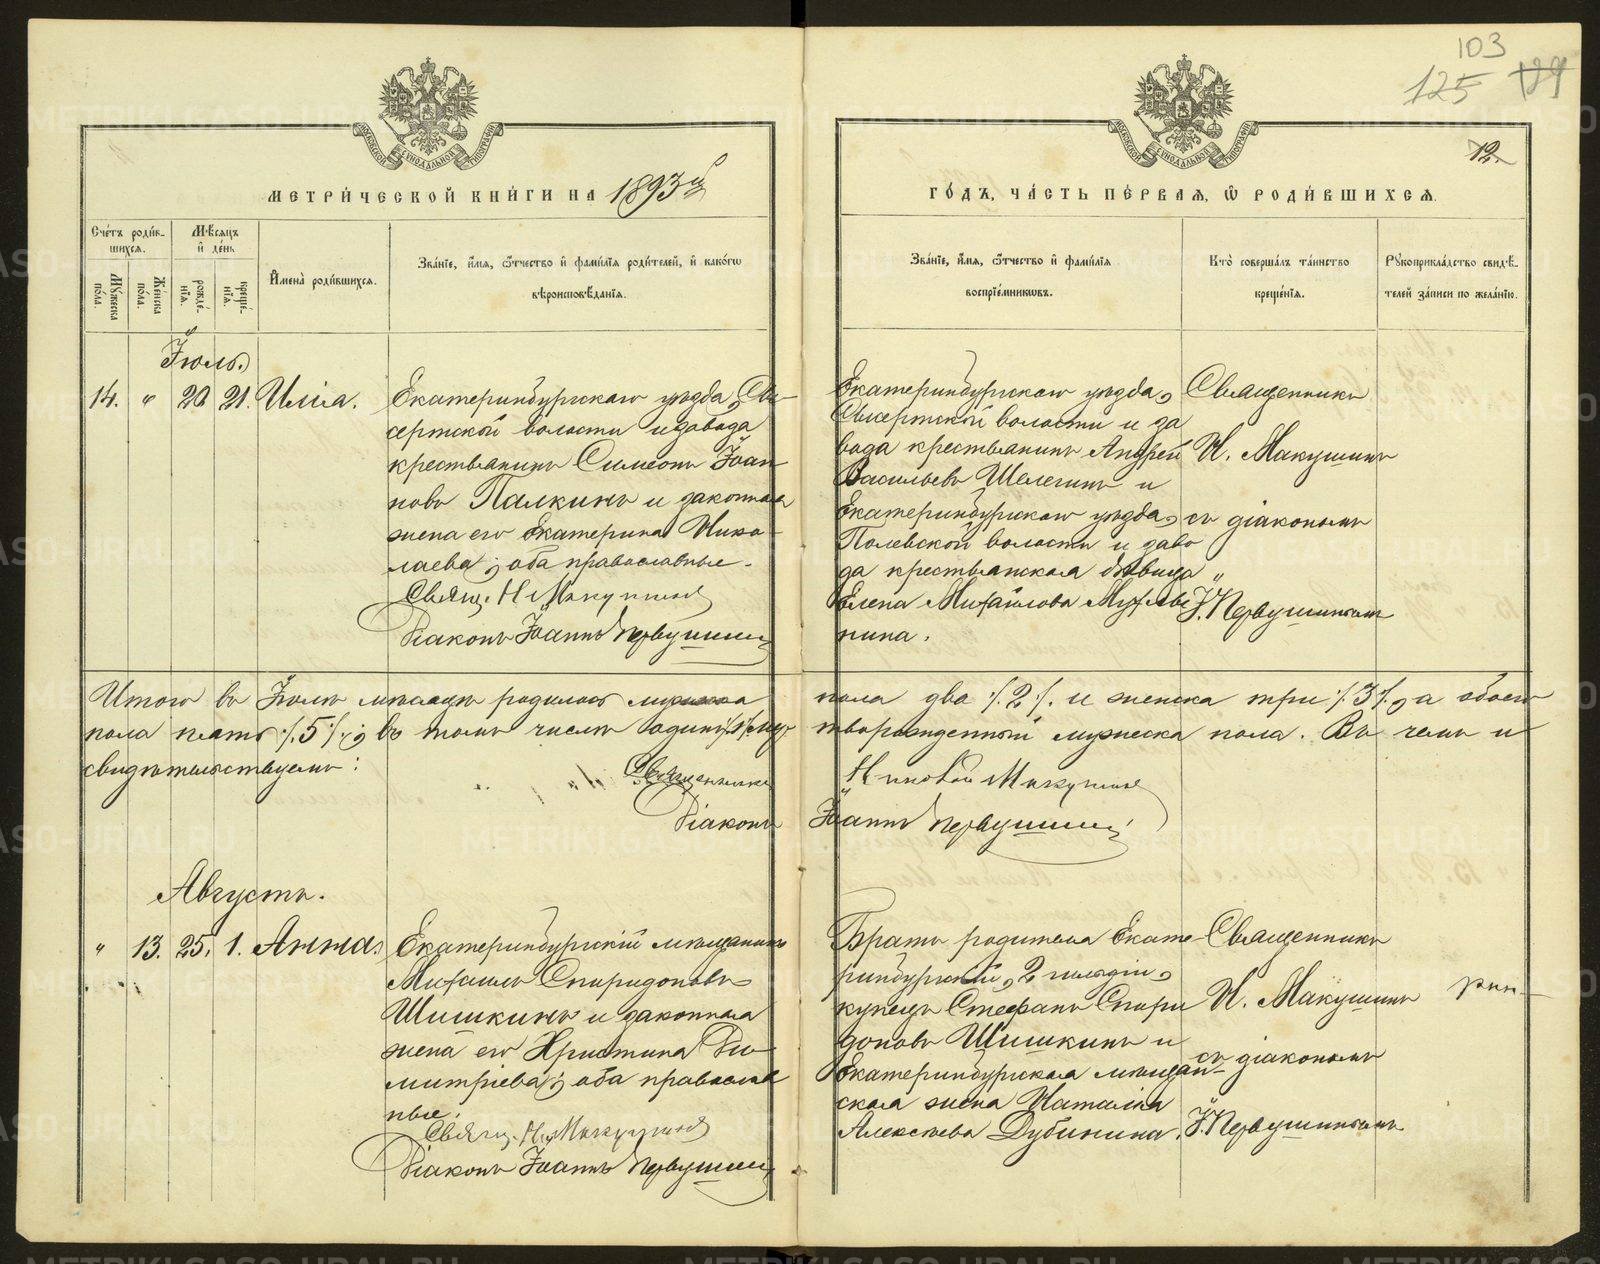 103
125 129
12.
МЕТРИ́ЧЕСКОЙ КНИ́ГИ НА 1893й
ГО́ДЪ, ЧА́СТЬ ПЕ́РВАЯ, Ѡ РОДИ́ВШИХСЯ.
Сче́тъ роди́вшихся.
Му́жеска по́ла.
Же́нска по́ла.
Мѣ́сяцъ и де́нь
рожде́нїя.
креще́нїя.
И҆мена̀ роди́вшихся.
Зва́нїе, и҆́мя, ѻ҆́тчество и҆ фами́лїя роди́телей, и҆ како́гѡ
вѣроисповѣ́данїя.
Зва́нїе, и҆́мя, ѻ҆́тчество и҆ фами́лїя
воспрїе́мникѡвъ.
Кто̀ соверша́лъ та́инство
креще́нїя.
Рꙋкоприкла́дство свидѣ́телей за́писи по жела́нїю.
Іюль.
14. " 20 21. Илія.
Екатеринбургскаго уѣзда, Сы-
сертской волости и завода
крестьянинъ Симеонъ Іоан
новъ Палкинъ и законная
жена его Екатерина Нико-
лаева; оба православные.
Свящ. Н. Макушинъ
Діаконъ Іоаннъ Первушинъ
Екатеринбургскаго уѣзда,
Сысертской волости и за
вода крестьянинъ Андрей
Васильевъ Шелегинъ и
Екатеринбургскаго уѣзда,
Полевской волости и заво
да крестьянская дѣвица
Елена Михайлова
нина.
Священникъ
Н. Макушинъ
съ діакономъ
І. Первушинымъ
Итого въ Іюлѣ мѣсяцѣ родилось мужеска пола два ·/.2·/. и женска три ·/.3·/., а обоего
пола пять ·/.5·/.; въ томъ числѣ одинъ ·/.1·/. мертворожденный мужеска пола. Въ чемъ и
свидѣтельствуемъ:
Священникъ Николай Макушинъ
Діаконъ Іоаннъ Первушинъ
Августъ.
" 13. 25. 1. Анна.
Екатеринбургскій мѣщанинъ
Михаилъ Спиридоновъ
Шишкинъ и законная
жена его Христина Ди-
митріева; оба православ
ные.
Свящ. Н. Макушинъ
Діаконъ Іоаннъ Первушинъ
Братъ родителя Екате-
ринбургскій, 2 гильдіи,
купецъ Стефанъ Спири
доновъ Шишкинъ и
Екатеринбургская мѣщан-
ская жена Наталія
Алексѣева Дубинина.
Священникъ
Н. Макушинъ
съ діакономъ
І. Первушинымъ
METRIKI.GASO-URAL.RU